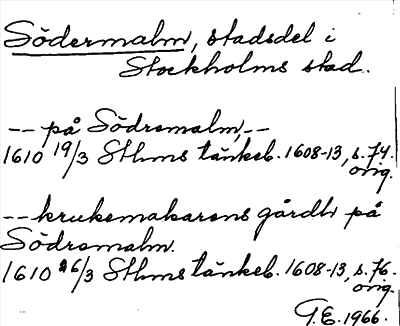 Södermalm, stadsdel i
Stockholms stad.
-- på Södremalm, --
1610 19/3 Sthms tänkeb. 1608-13, s. 74.
orig.
-- krukemakarens gårdh på
Södremalm.
1610 26/3 Sthms tänkeb. 1608-13, s. 76.
orig.
G.E. 1966.